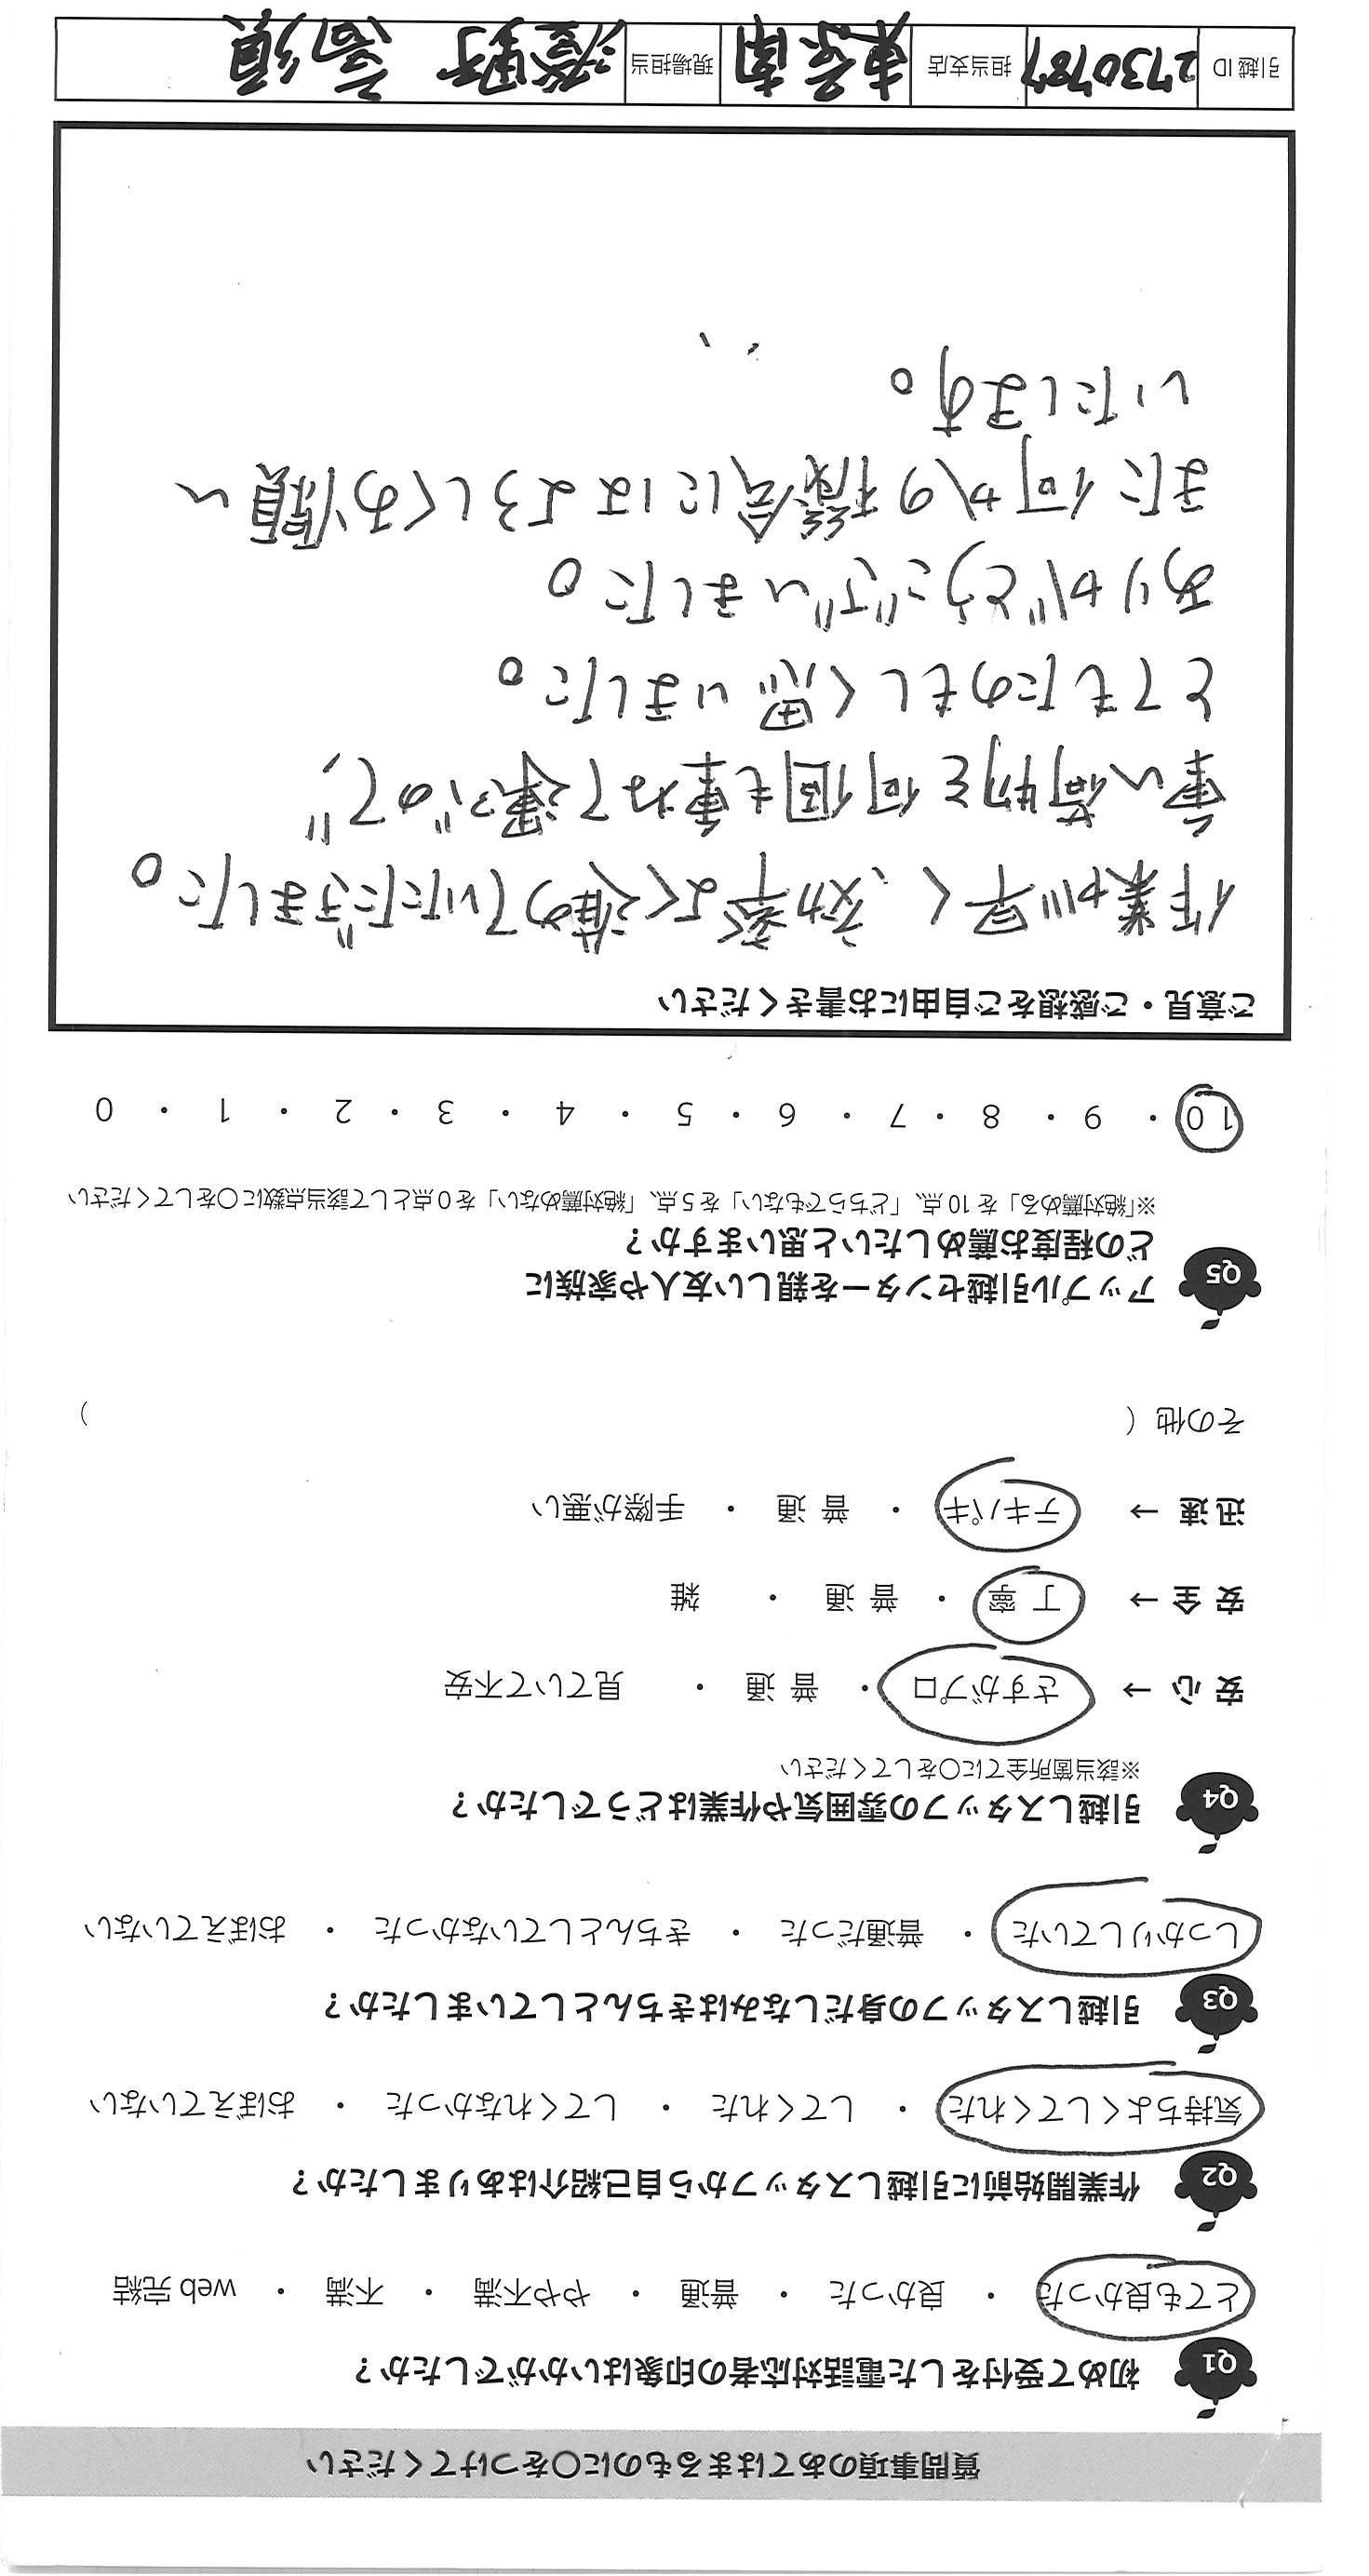 質問事項のあてはまるものに○をつけてください
Q1 初めて受付をした電話対応者の印象はいかがでしたか？
とても良かった ・ 良かった ・ 普通 ・ やや不満 ・ 不満 ・ web 完結
Q2 作業開始前に引越しスタッフから自己紹介はありましたか？
気持ちよくしてくれた ・ してくれた ・ してくれなかった ・ おぼえていない
Q3 引越しスタッフの身だしなみはきちんとしていましたか？
しっかりしていた ・ 普通だった ・ きちんとしていなかった ・ おぼえていない
Q4 引越しスタッフの雰囲気や作業はどうでしたか？
※該当箇所全てに○をしてください
安心 → さすがプロ ・ 普通 ・ 見ていて不安
安全 → 丁寧 ・ 普通 ・ 雑
迅速 → テキパキ ・ 普通 ・ 手際が悪い
その他 （ ）
Q5 アップル引越センターを親しい友人や家族に
どの程度お薦めしたいと思いますか？
※「絶対薦める」を 10 点、「どちらでもない」を 5 点、「絶対薦めない」を 0 点として該当点数に○をしてください
10 ・ 9 ・ 8 ・ 7 ・ 6 ・ 5 ・ 4 ・ 3 ・ 2 ・ 1 ・ 0
ご意見・ご感想をご自由にお書きください
作業が早く、効率よく進めていただきました。
重い荷物を何個も重ねて運ぶので、
とてもたのもしく思いました。
ありがとうございました。
また何かの機会にはよろしくお願い
いたします。
引越 ID 2730787 担当支店 東京南 現場担当 澄野 高須